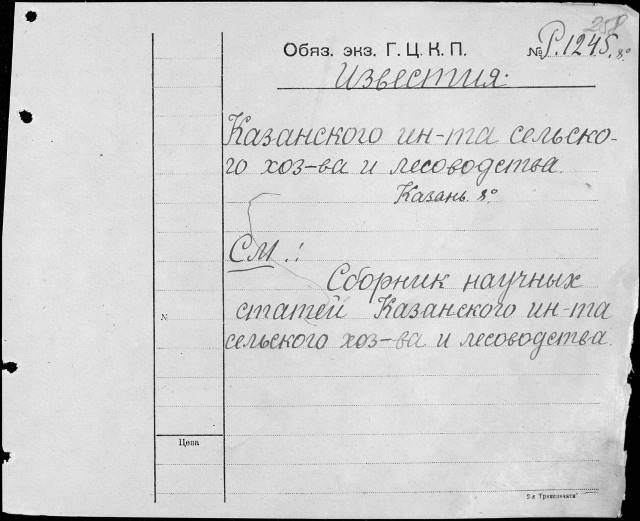 Обяз. экз. Г. Ц. К. П. № Р. 1245. 8°
Известия.
Казанского ин-та сельско-
го хоз-ва и лесоводства.
Казань. 8°
См.:
Сборник научных
статей Казанского ин-та
сельского хоз-ва и лесоводства.
N
Цена